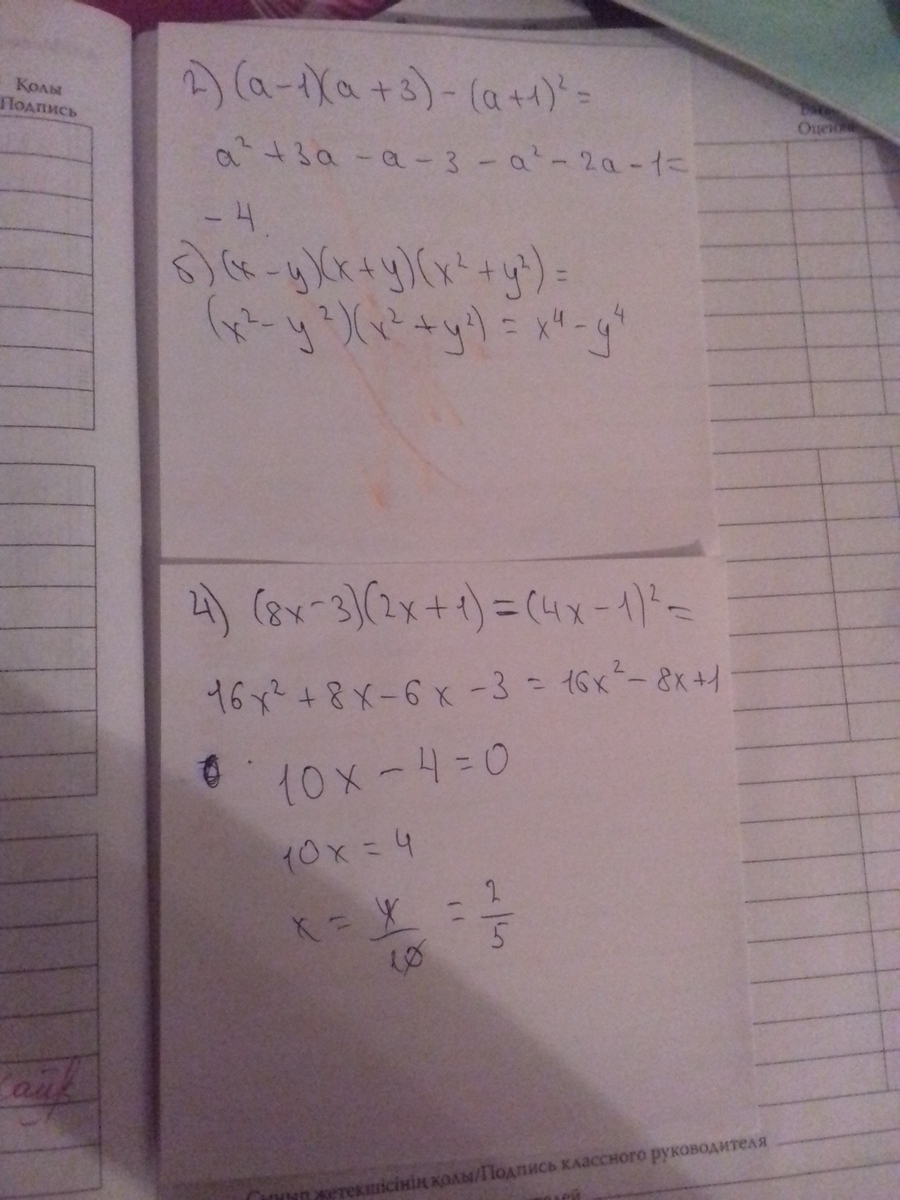 Қолы
Подпись
Оценка
2) (a-1)(a+3) - (a+1)² =
a² + 3a - a - 3 - a² - 2a - 1 =
- 4.
б) (x-y)(x+y)(x²+y²) =
(x²-y²)(x²+y²) = x⁴-y⁴
4) (8x-3)(2x+1) = (4x-1)² =
16x² + 8x - 6x - 3 = 16x² - 8x + 1
10x - 4 = 0
10x = 4
x = 4/10 = 2/5
Сынып жетекшісінің қолы/Подпись классного руководителя